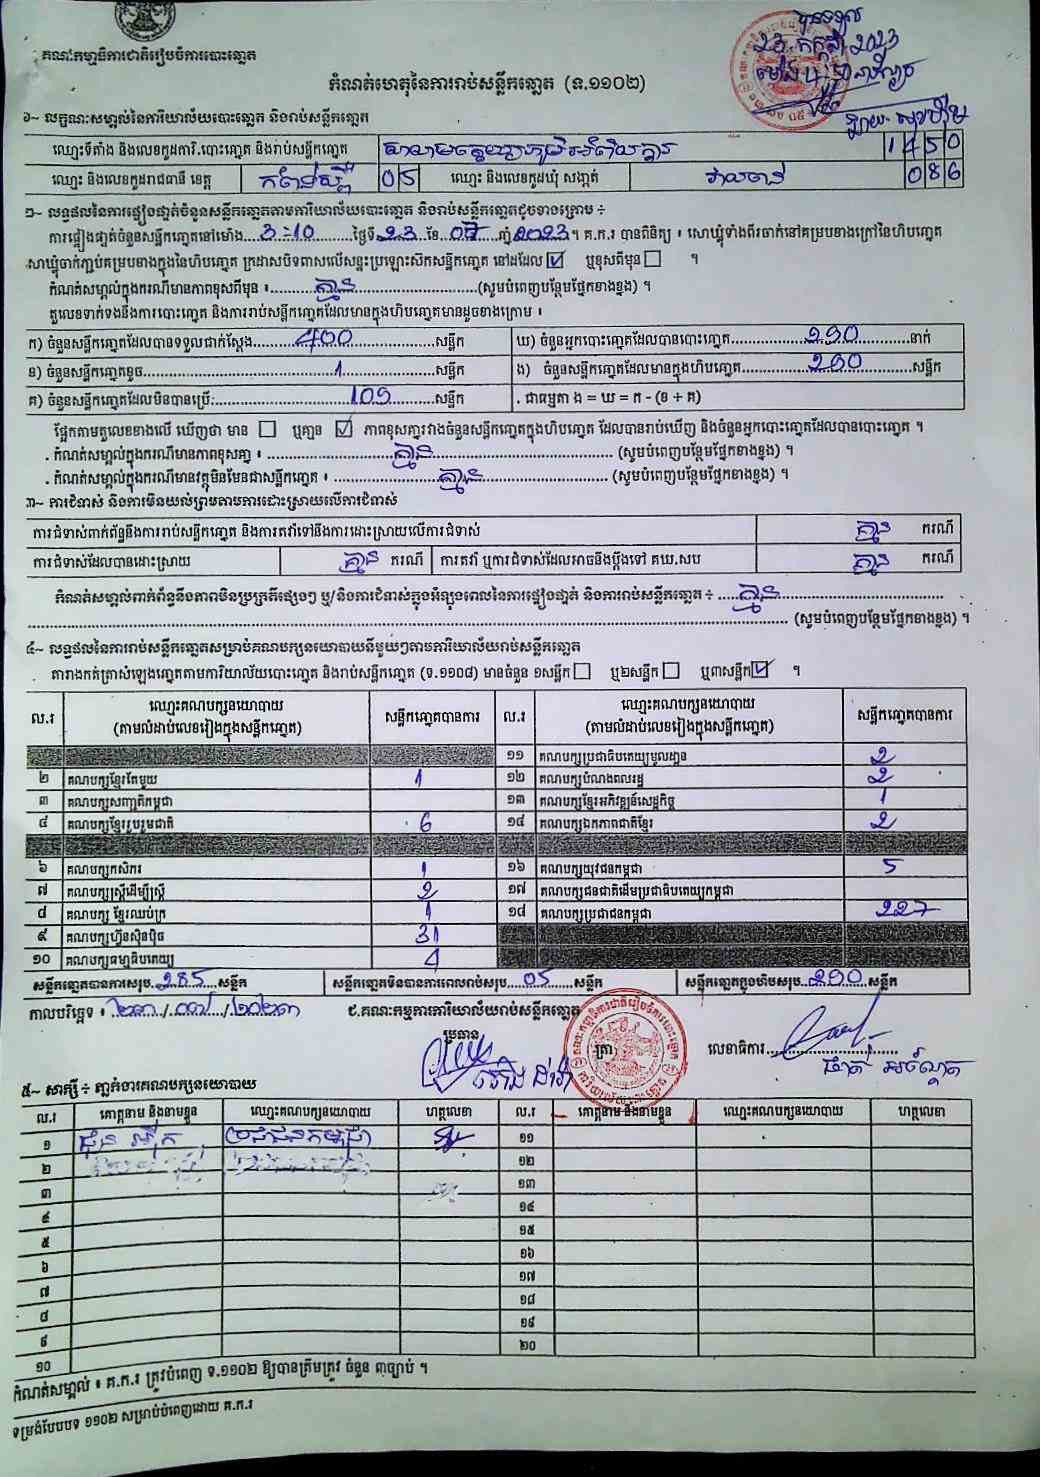 គណៈកម្មាធិការជាតិរៀបចំការបោះឆ្នោត
បានទទួល
23 កក្កដា 2023
កំណត់ហេតុនៃការរាប់សន្លឹកឆ្នោត (ទ.១១០២)
១~ លក្ខណៈសម្គាល់នៃការិយាល័យបោះឆ្នោត និងរាប់សន្លឹកឆ្នោត
ឈ្មោះទីតាំង និងលេខកូដការិ.បោះឆ្នោត និងរាប់សន្លឹកឆ្នោត 1450
ឈ្មោះ និងលេខកូដរាជធានី ខេត្ត កំពង់ស្ពឺ 05 ឈ្មោះ និងលេខកូដឃុំ សង្កាត់ 086
២~ លទ្ធផលនៃការផ្ទៀងផ្ទាត់ចំនួនសន្លឹកឆ្នោតតាមការិយាល័យបោះឆ្នោត និងរាប់សន្លឹកឆ្នោតដូចខាងក្រោម ៖
ការផ្ទៀងផ្ទាត់ចំនួនសន្លឹកឆ្នោតនៅម៉ោង 3:10 ថ្ងៃទី 23 ខែ 07 ឆ្នាំ 2023 ។ គ.ក.រ បានពិនិត្យ ៖ សោឃ្មុំទាំងពីរចាក់នៅគម្របខាងក្រៅនៃហិបឆ្នោត
សោឃ្មុំចាក់ភ្ជាប់គម្របខាងក្នុងនៃហិបឆ្នោត ក្រដាសបិទពាសលើសន្ទះប្រឡោះសឹកសន្លឹកឆ្នោត នៅដដែល ☑ ឬខុសពីមុន ☐ ។
កំណត់សម្គាល់ក្នុងករណីមានភាពខុសពីមុន ៖ គ្មាន (សូមបំពេញបន្ថែមផ្នែកខាងខ្នង) ។
តួលេខទាក់ទងនឹងការបោះឆ្នោត និងការរាប់សន្លឹកឆ្នោតដែលមានក្នុងហិបឆ្នោតមានដូចខាងក្រោម ៖
ក) ចំនួនសន្លឹកឆ្នោតដែលបានទទួលជាក់ស្តែង 400 សន្លឹក ឃ) ចំនួនអ្នកបោះឆ្នោតដែលបានបោះឆ្នោត 290 នាក់
ខ) ចំនួនសន្លឹកឆ្នោតខូច 1 សន្លឹក ង) ចំនួនសន្លឹកឆ្នោតដែលមានក្នុងហិបឆ្នោត 290 សន្លឹក
គ) ចំនួនសន្លឹកឆ្នោតដែលមិនបានប្រើ 109 សន្លឹក . ជាធម្មតា ង = ឃ = ក - (ខ + គ)
ផ្អែកតាមតួលេខខាងលើ ឃើញថា មាន ☐ ឬគ្មាន ☑ ភាពខុសគ្នារវាងចំនួនសន្លឹកឆ្នោតក្នុងហិបឆ្នោត ដែលបានរាប់ឃើញ និងចំនួនអ្នកបោះឆ្នោតដែលបានបោះឆ្នោត ។
. កំណត់សម្គាល់ក្នុងករណីមានភាពខុសគ្នា ៖ គ្មាន (សូមបំពេញបន្ថែមផ្នែកខាងខ្នង) ។
. កំណត់សម្គាល់ក្នុងករណីមានវត្ថុមិនមែនជាសន្លឹកឆ្នោត ៖ គ្មាន (សូមបំពេញបន្ថែមផ្នែកខាងខ្នង) ។
៣~ ការជំទាស់ និងការមិនយល់ព្រមតាមការដោះស្រាយលើការជំទាស់
ការជំទាស់ពាក់ព័ន្ធនឹងការរាប់សន្លឹកឆ្នោត និងការតវ៉ាទៅនឹងការដោះស្រាយលើការជំទាស់ គ្មាន ករណី
ការជំទាស់ដែលបានដោះស្រាយ គ្មាន ករណី ការតវ៉ា ឬការជំទាស់ដែលអាចនឹងប្តឹងទៅ គឃ.សប គ្មាន ករណី
កំណត់សម្គាល់ពាក់ព័ន្ធនឹងភាពមិនប្រក្រតីផ្សេងៗ ឬ/និងការជំទាស់ក្នុងអំឡុងពេលនៃការផ្ទៀងផ្ទាត់ និងការរាប់សន្លឹកឆ្នោត ៖ គ្មាន
(សូមបំពេញបន្ថែមផ្នែកខាងខ្នង) ។
៤~ លទ្ធផលនៃការរាប់សន្លឹកឆ្នោតសម្រាប់គណបក្សនយោបាយនីមួយៗតាមការិយាល័យរាប់សន្លឹកឆ្នោត
តារាងកត់ត្រាសំឡេងឆ្នោតតាមការិយាល័យបោះឆ្នោត និងរាប់សន្លឹកឆ្នោត (ទ.១១០៨) មានចំនួន ១សន្លឹក ☐ ឬ២សន្លឹក ☐ ឬ៣សន្លឹក ☑ ។
ល.រ ឈ្មោះគណបក្សនយោបាយ (តាមលំដាប់លេខរៀងក្នុងសន្លឹកឆ្នោត) សន្លឹកឆ្នោតបានការ ល.រ ឈ្មោះគណបក្សនយោបាយ (តាមលំដាប់លេខរៀងក្នុងសន្លឹកឆ្នោត) សន្លឹកឆ្នោតបានការ
១១ គណបក្សប្រជាធិបតេយ្យមូលដ្ឋាន 2
២ គណបក្សខ្មែរតែមួយ 1 ១២ គណបក្សបំណងពលរដ្ឋ 2
៣ គណបក្សសញ្ជាតិកម្ពុជា ១៣ គណបក្សខ្មែរអភិវឌ្ឍន៍សេដ្ឋកិច្ច 1
៤ គណបក្សខ្មែររួបរួមជាតិ 6 ១៤ គណបក្សឯកភាពជាតិខ្មែរ 2
៦ គណបក្សកសិករ 1 ១៦ គណបក្សយុវជនកម្ពុជា 5
៧ គណបក្សស្ត្រីដើម្បីស្ត្រី 2 ១៧ គណបក្សជនជាតិដើមប្រជាធិបតេយ្យកម្ពុជា
៨ គណបក្ស ខ្មែរឈប់ក្រ 1 ១៨ គណបក្សប្រជាជនកម្ពុជា 227
៩ គណបក្សហ្វ៊ុនស៊ិនប៉ិច 31
១០ គណបក្សធម្មាធិបតេយ្យ 4
សន្លឹកឆ្នោតបានការសរុប 285 សន្លឹក សន្លឹកឆ្នោតមិនបានការពេលរាប់សរុប 05 សន្លឹក សន្លឹកឆ្នោតក្នុងហិបសរុប 290 សន្លឹក
កាលបរិច្ឆេទ ៖ ២៣/០៧/២០២៣ ជ.គណៈកម្មការការិយាល័យរាប់សន្លឹកឆ្នោត
ប្រធាន ត្រា លេខាធិការ
៥~ សាក្សី ៖ ភ្នាក់ងារគណបក្សនយោបាយ
ល.រ គោត្តនាម និងនាមខ្លួន ឈ្មោះគណបក្សនយោបាយ ហត្ថលេខា ល.រ គោត្តនាម និងនាមខ្លួន ឈ្មោះគណបក្សនយោបាយ ហត្ថលេខា
១ ប្រជាជនកម្ពុជា ១១
២ ១២
៣ ១៣
៤ ១៤
៥ ១៥
៦ ១៦
៧ ១៧
៨ ១៨
៩ ១៩
១០ ២០
កំណត់សម្គាល់ ៖ គ.ក.រ ត្រូវបំពេញ ទ.១១០២ ឱ្យបានត្រឹមត្រូវ ចំនួន ៣ច្បាប់ ។
ទម្រង់បែបបទ ១១០២ សម្រាប់បំពេញដោយ គ.ក.រ